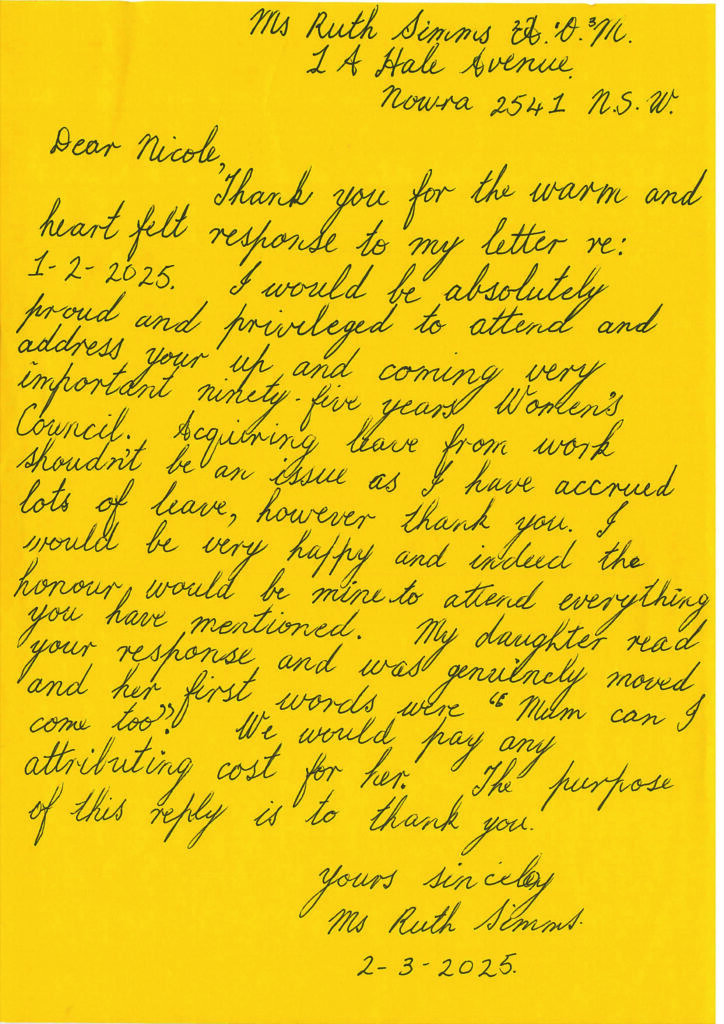 Ms Ruth Simms A.O.M.
1 A Hale Avenue.
Nowra 2541 N.S.W.
Dear Nicole,
Thank you for the warm and
heart felt response to my letter re:
1-2-2025. I would be absolutely
proud and privileged to attend and
address your up and coming very
important ninety-five years Women's
Council. Acquiring leave from work
shoudn't be an issue as I have accrued
lots of leave, however thank you. I
would be very happy and indeed the
honour would be mine to attend everything
you have mentioned. My daughter read
your response and was genuinely moved
and her first words were "Mum can I
come too"? We would pay any
attributing cost for her. The purpose
of this reply is to thank you.
Yours sincerely
Ms Ruth Simms.
2-3-2025.